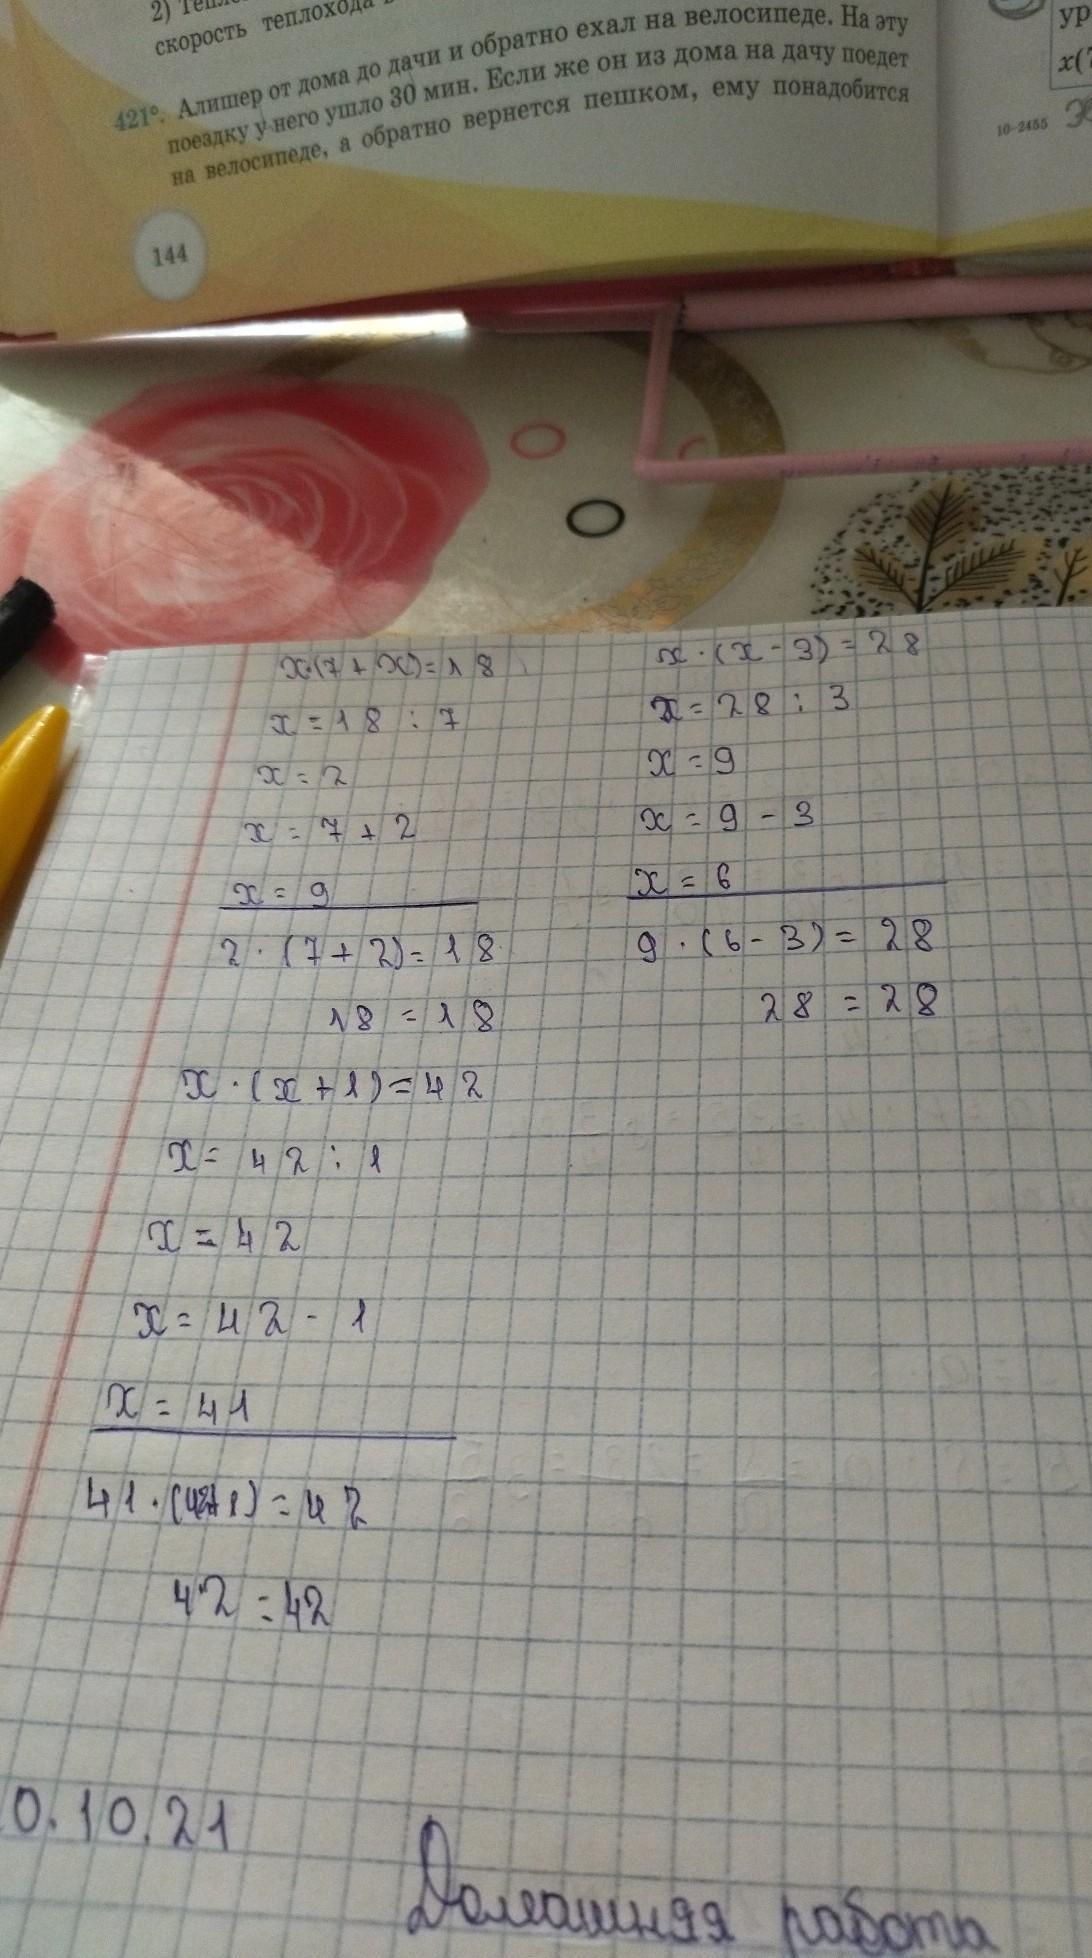 2)
скорость теплохода
421°. Алишер от дома до дачи и обратно ехал на велосипеде. На эту
поездку у него ушло 30 мин. Если же он из дома на дачу поедет
на велосипеде, а обратно вернется пешком, ему понадобится
144
ур
x(7
10-2455
x·(7+x)=18
x=18:7
x=2
x=7+2
x=9
2·(7+2)=18
18=18
x·(x-3)=28
x=28:3
x=9
x=9-3
x=6
9·(6-3)=28
28=28
x·(x+1)=42
x=42:1
x=42
x=42-1
x=41
41·( 1)=42
42=42
0.10.21
Домашняя работа